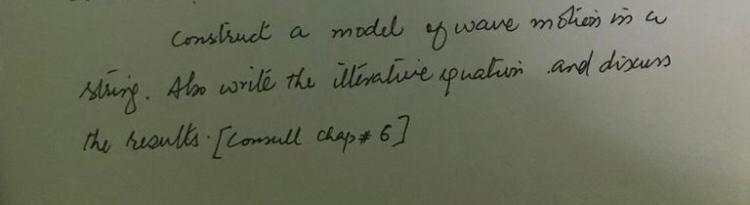 Construct a model of wave motion in a
string. Also write the itterative equation and discuss
the results. [Consull chap # 6]